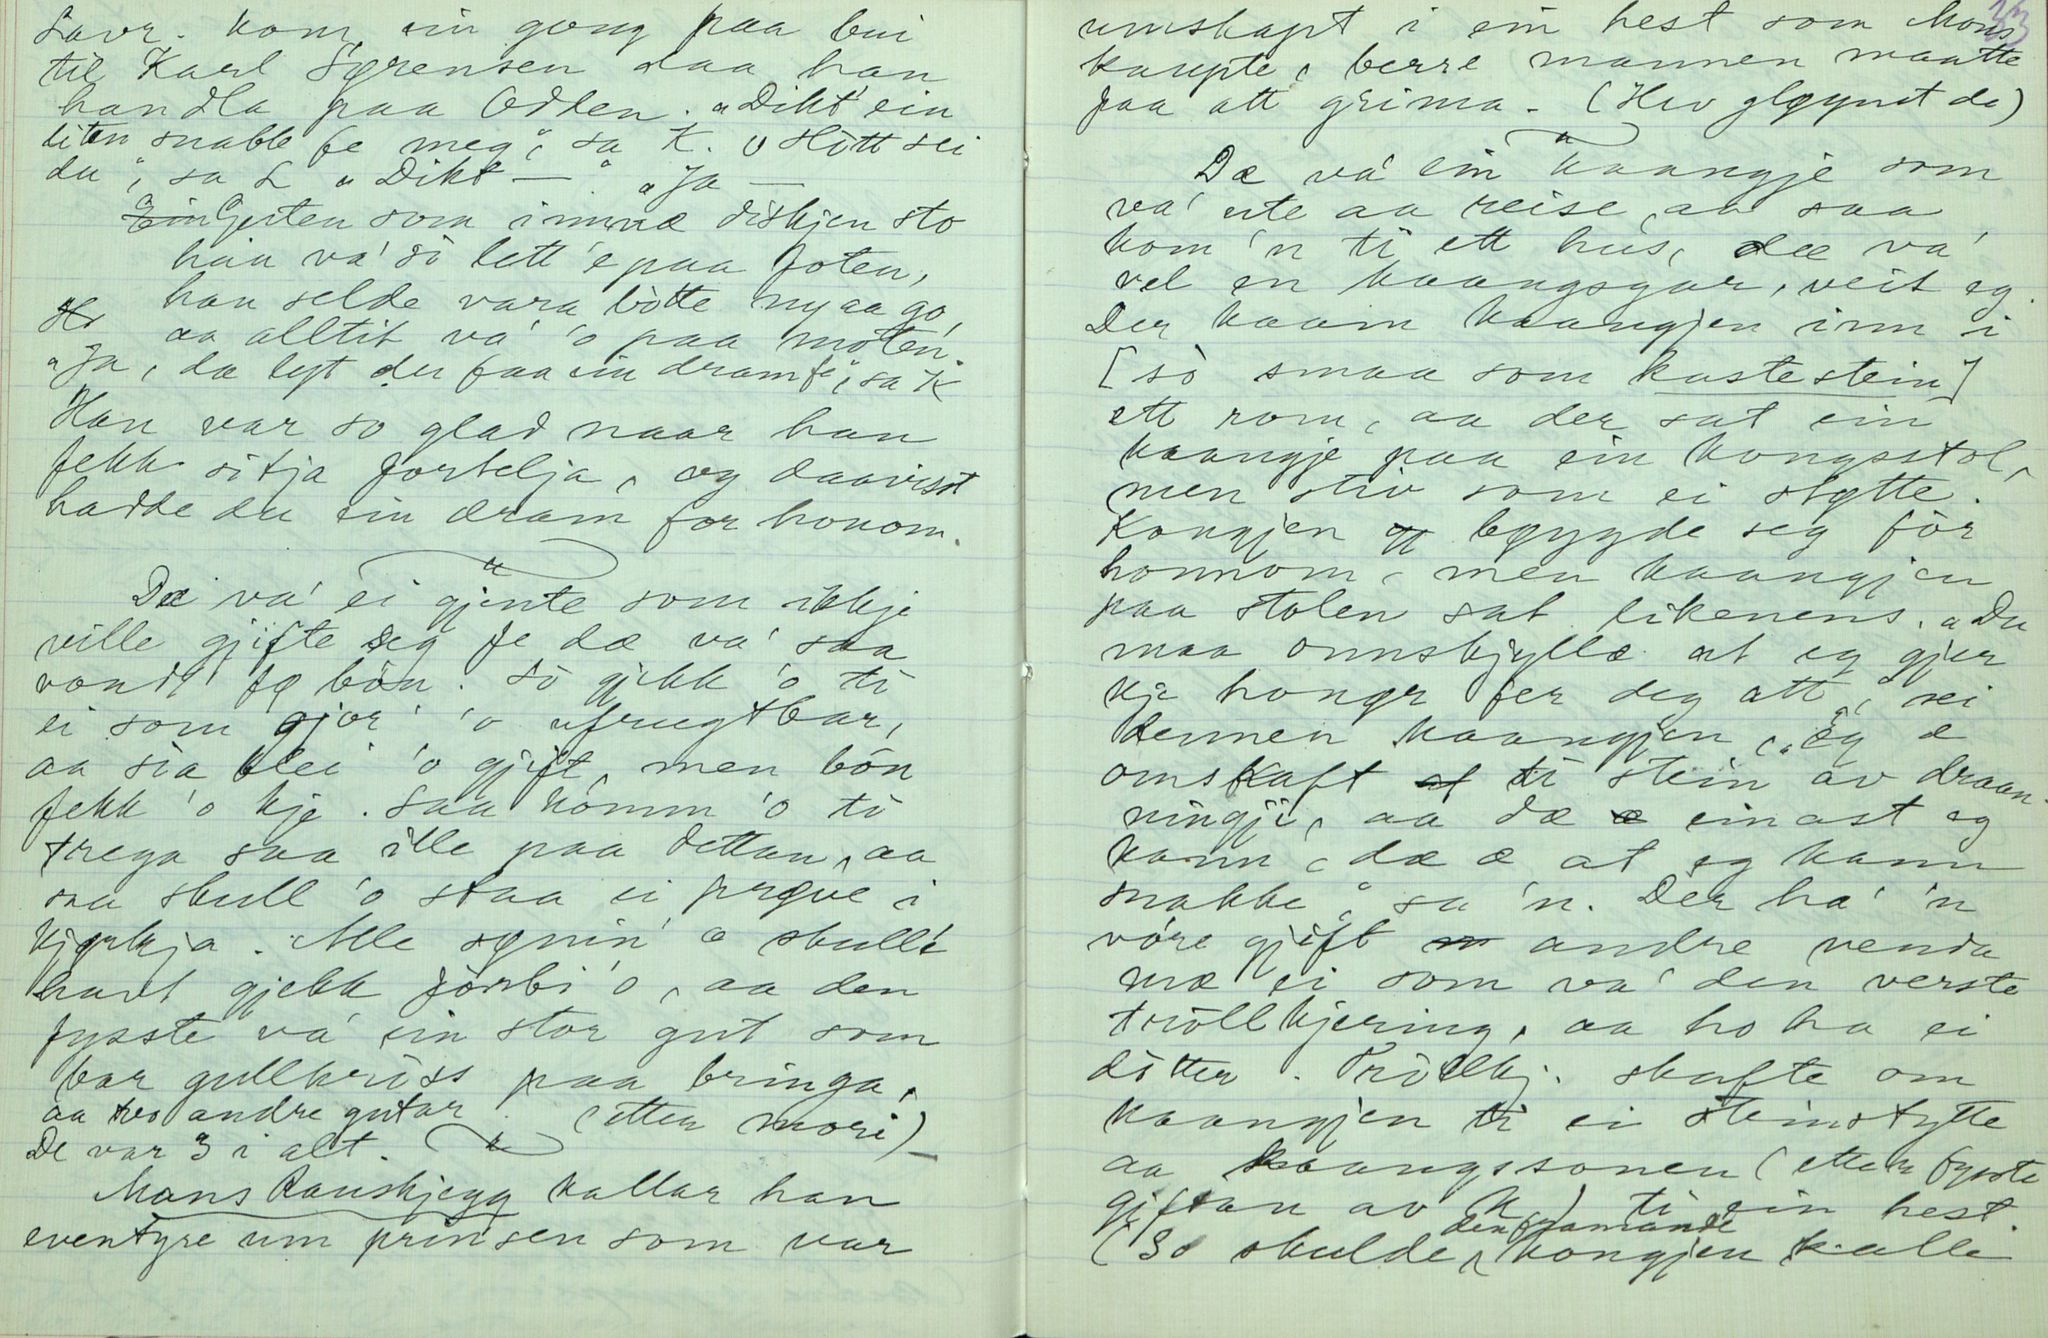 Lavr. kom ein gong paa bui
til Karl Sørensen daa han
handla paa Odden. „Dikt ein
liten snabb fe meg“, sa K. „Hòtt sei
du“, sa L „Dikt — “. „Ja —
„Gjesten som innunæ diskjen sto
han va' sò lett 'e paa foten,
han selde vara bòtte ny aa go,
aa alltit va' 'o paa moten.
„Ja, dæ lyt du faa ein dram fe“, sa K
Han var so glad naar han
fekk sitja fortelja, og daavisst
hadde du ein dram for honom.
Dæ va' ei gjente som ikkje
ville gjifte seg fe dæ va' saa
vondt fø bòn. Sò gjikk 'o ti
ei som gjor' 'o ufrugtbar,
aa sia blei 'o gjift, men bòn
fekk 'o kje. Saa kòmm 'o ti
trega saa ille paa dettan, aa
saa skull 'o staa ei prøve i
kjørkja. Alle sønin' o skull'e
havt gjekk fòrbi 'o, aa den
fysste va' ein stor gut som
bar gullkriss paa bringa,
aa two andre gutar (etter mori)
De var 3 i alt.
Mons Rauskjegg kallar han
eventyre um prinsen som var
33
umskapt i ein hest som Mons
kaupte, berre mannen maatte
faa att grima. (Hev gløymt de)
Dæ va' ein kaangje som
va' ute aa reise, aa saa
kom 'n ti ett hus, dæ va'
vel en kaangsgar, veit eg.
Der kaam kaangjen inn i
[sò smaa som kastestein]
ett rom, aa der sat ein
kaangje paa ein kongsstol,
men stiv som ei støtte.
Kongjen bøygde seg fòr
honnom, men kaangjen
paa stolen sat likenens. „Du
maa onnskjylle at eg gjer
kje hongr fer deg att“, sei
dennen kaangjen, „Eg æ
omskaft ti stein av draan-
ningji, aa dæ einast eg
kann, dæ æ at eg kann
snakke“ sa 'n. Der ha' 'n
vòre gjift andre venda
mæ ei som va' den verste
tròllkjering, aa ho ha ei
dòtter. Tròllkj. skafte om
kaangjen ti ei steinstytte
aa kaangssonen (etter fyrste
gjiftan av K) ti ein hest.
(So skulde den framande kongjen kalle